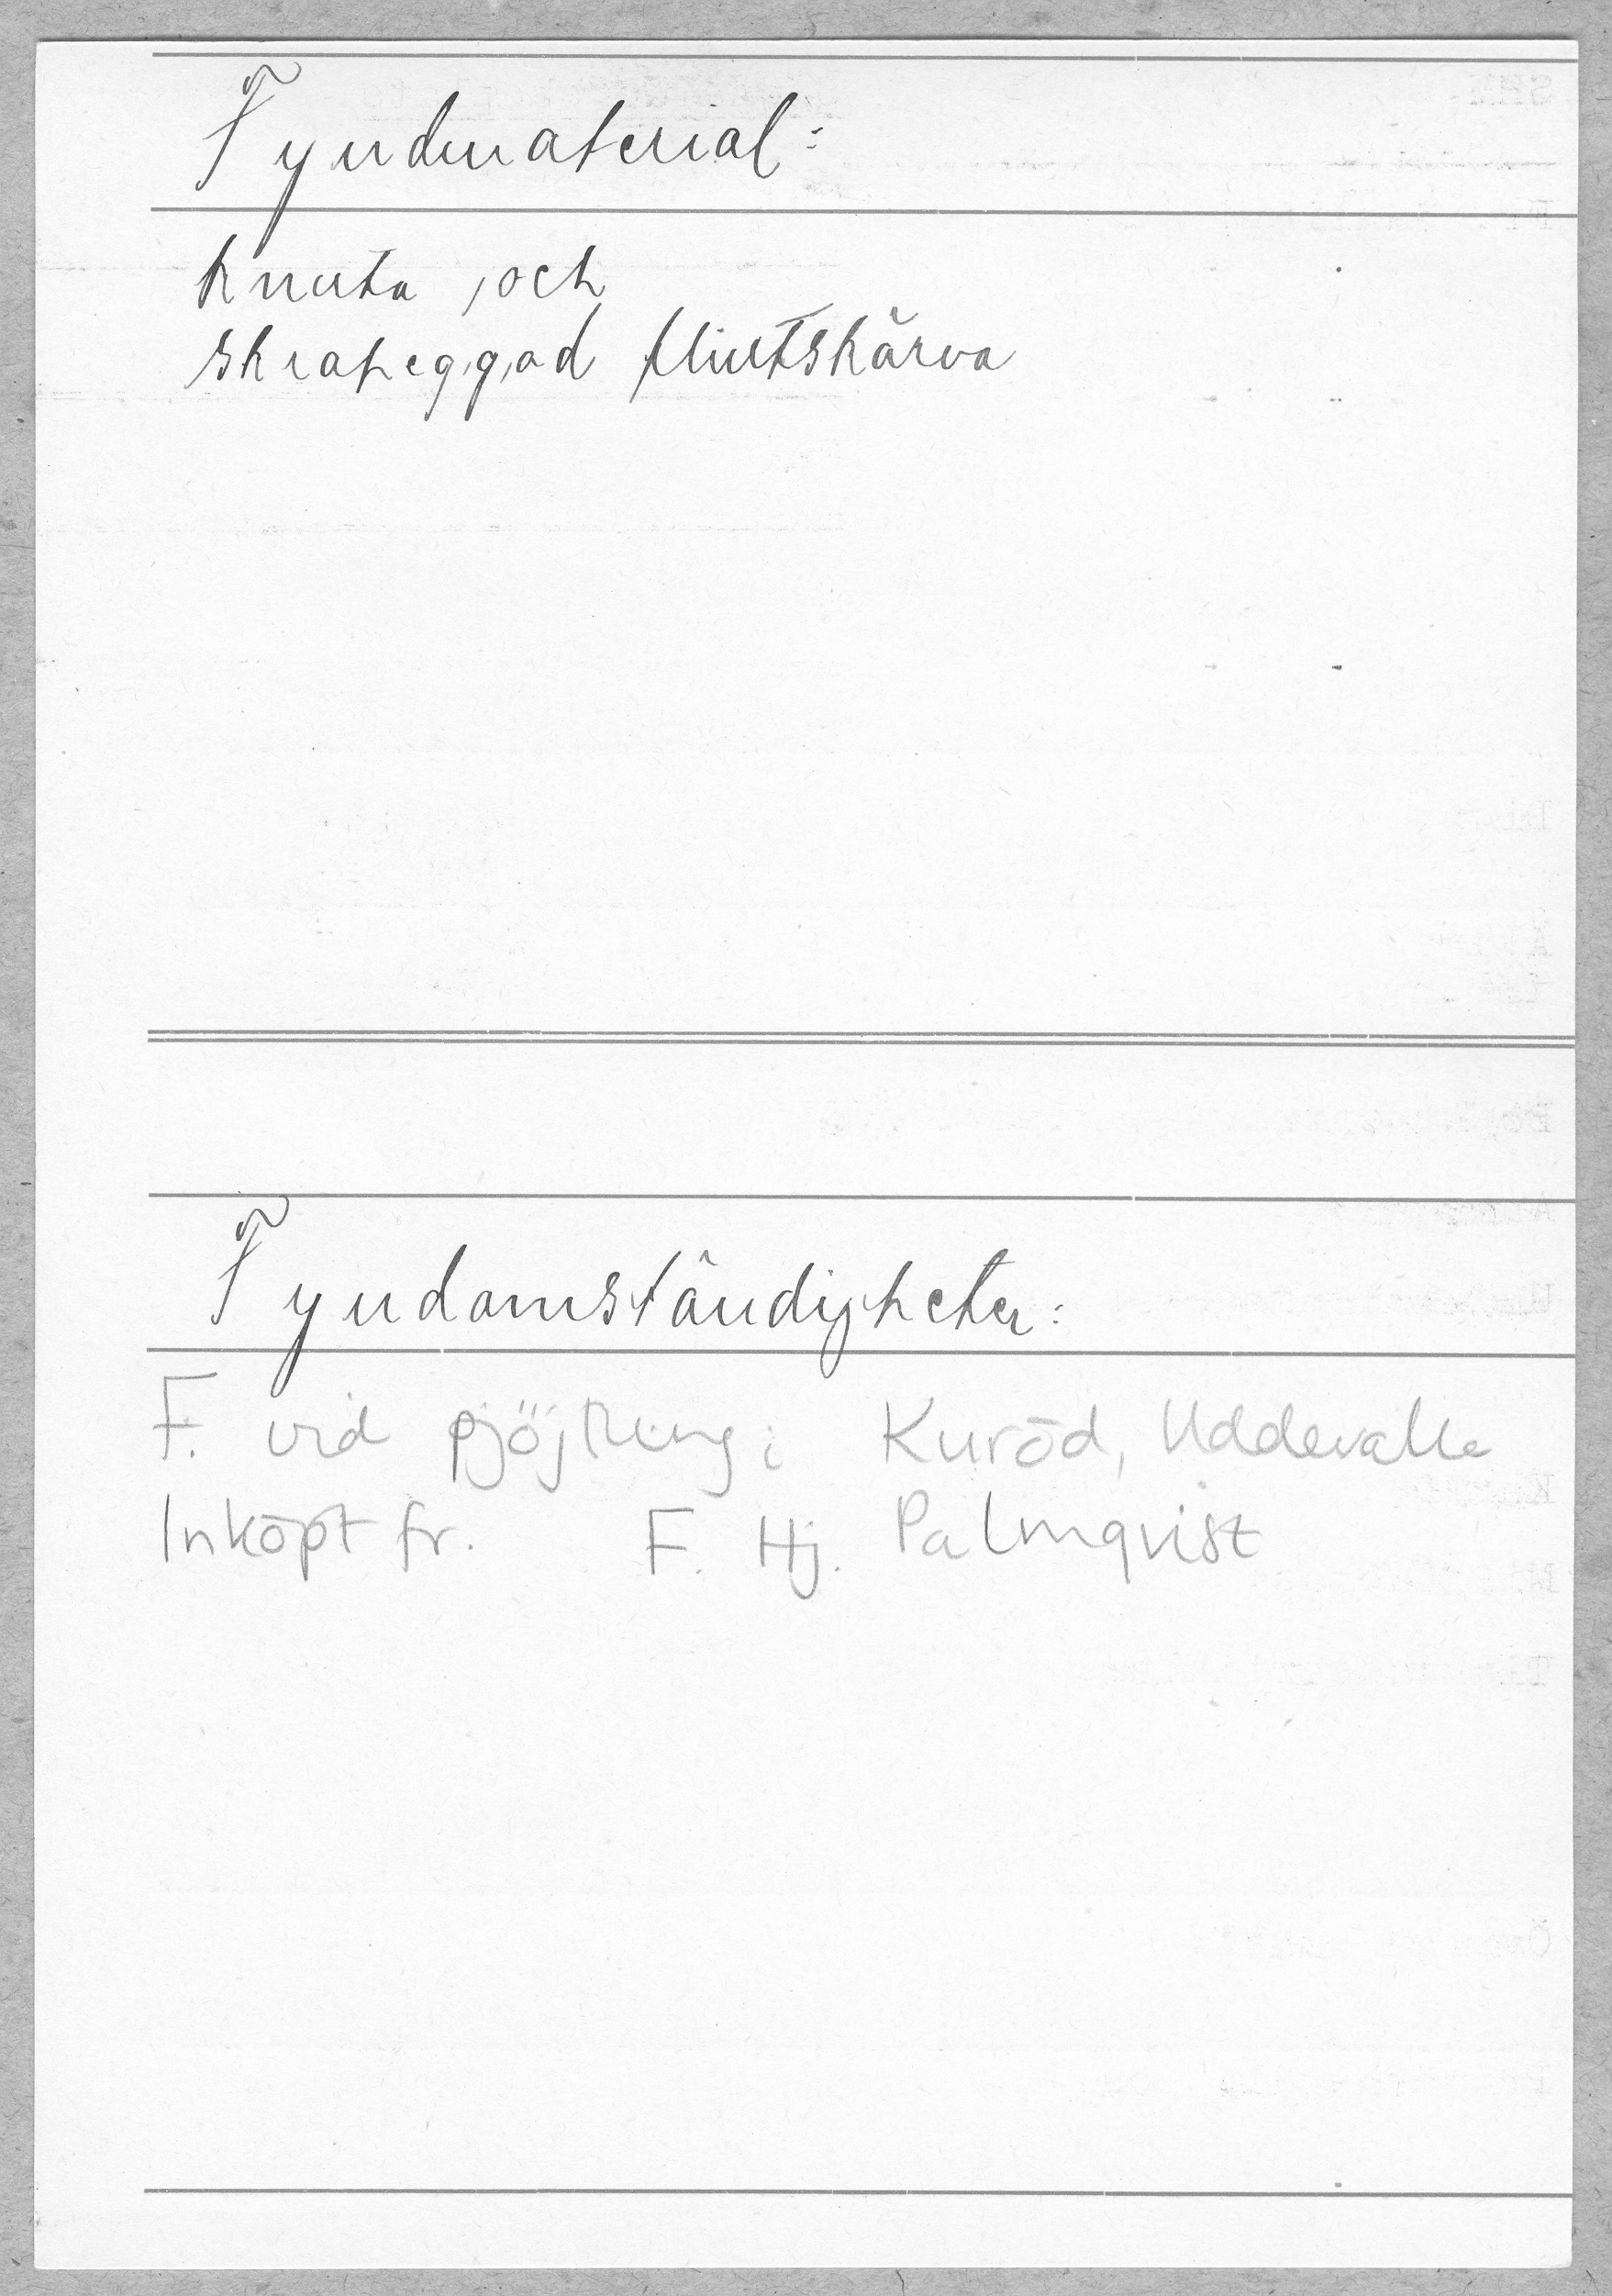 Fyndmaterial:
knuta, och
skrapeggad flintskärva
Fyndomständigheter:
F. vid pjöjtning i Kuröd, Uddevalla
Inköpt fr. F. Hj. Palmqvist